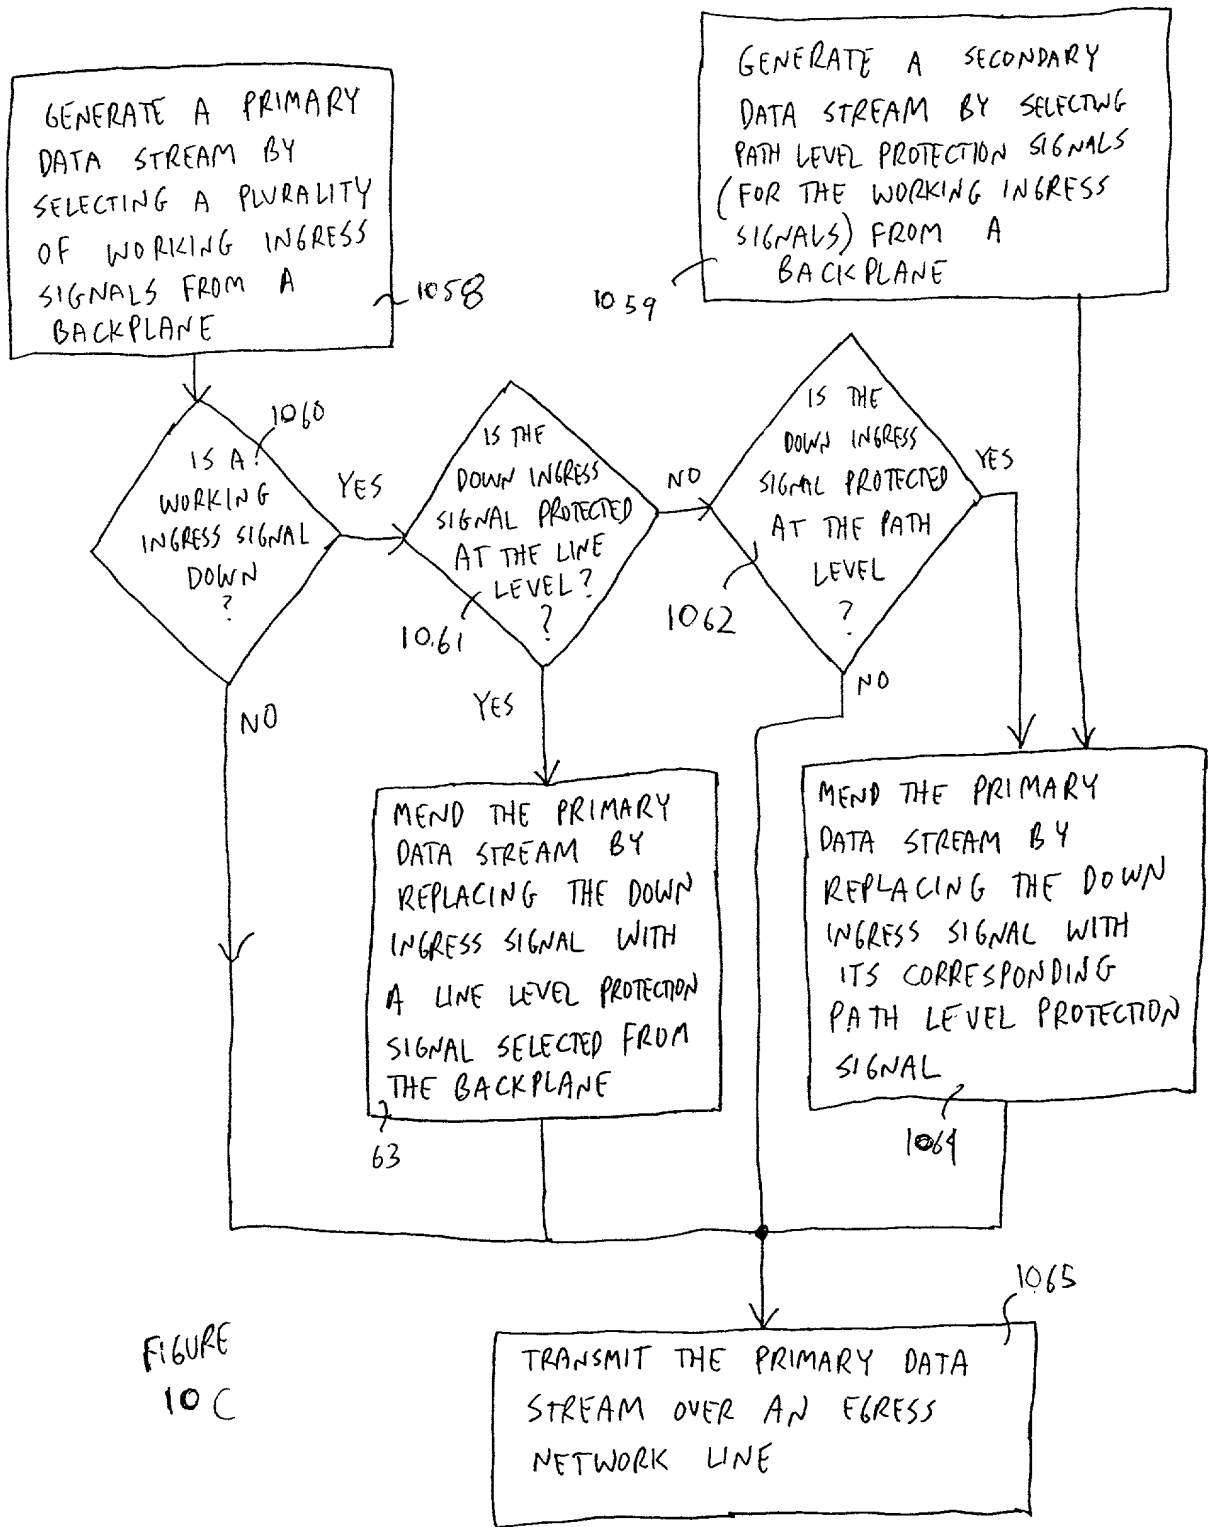 GENERATE A PRIMARY
DATA STREAM BY
SELECTING A PLURALITY
OF WORKING INGRESS
SIGNALS FROM A
BACKPLANE
1058
GENERATE A SECONDARY
DATA STREAM BY SELECTING
PATH LEVEL PROTECTION SIGNALS
(FOR THE WORKING INGRESS
SIGNALS) FROM A
BACKPLANE
1059
1060
IS A?
WORKING
INGRESS SIGNAL
DOWN
?
YES
NO
IS THE
DOWN INGRESS
SIGNAL PROTECTED
AT THE LINE
LEVEL?
?
1061
NO
YES
IS THE
DOWN INGRESS
SIGNAL PROTECTED
AT THE PATH
LEVEL
?
1062
YES
NO
MEND THE PRIMARY
DATA STREAM BY
REPLACING THE DOWN
INGRESS SIGNAL WITH
A LINE LEVEL PROTECTION
SIGNAL SELECTED FROM
THE BACKPLANE
63
MEND THE PRIMARY
DATA STREAM BY
REPLACING THE DOWN
INGRESS SIGNAL WITH
ITS CORRESPONDING
PATH LEVEL PROTECTION
SIGNAL
1064
1065
TRANSMIT THE PRIMARY DATA
STREAM OVER AN EGRESS
NETWORK LINE
FIGURE
10C